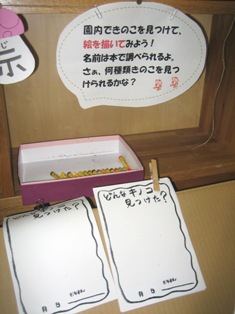 示
園内できのこを見つけて、
絵を描いてみよう！
名前は本で調べられるよ。
さぁ、何種類きのこを見つ
けられるかな？
どんなキノコ
見つけた？
月 日
どんなキノコ
見つけた？
月 日